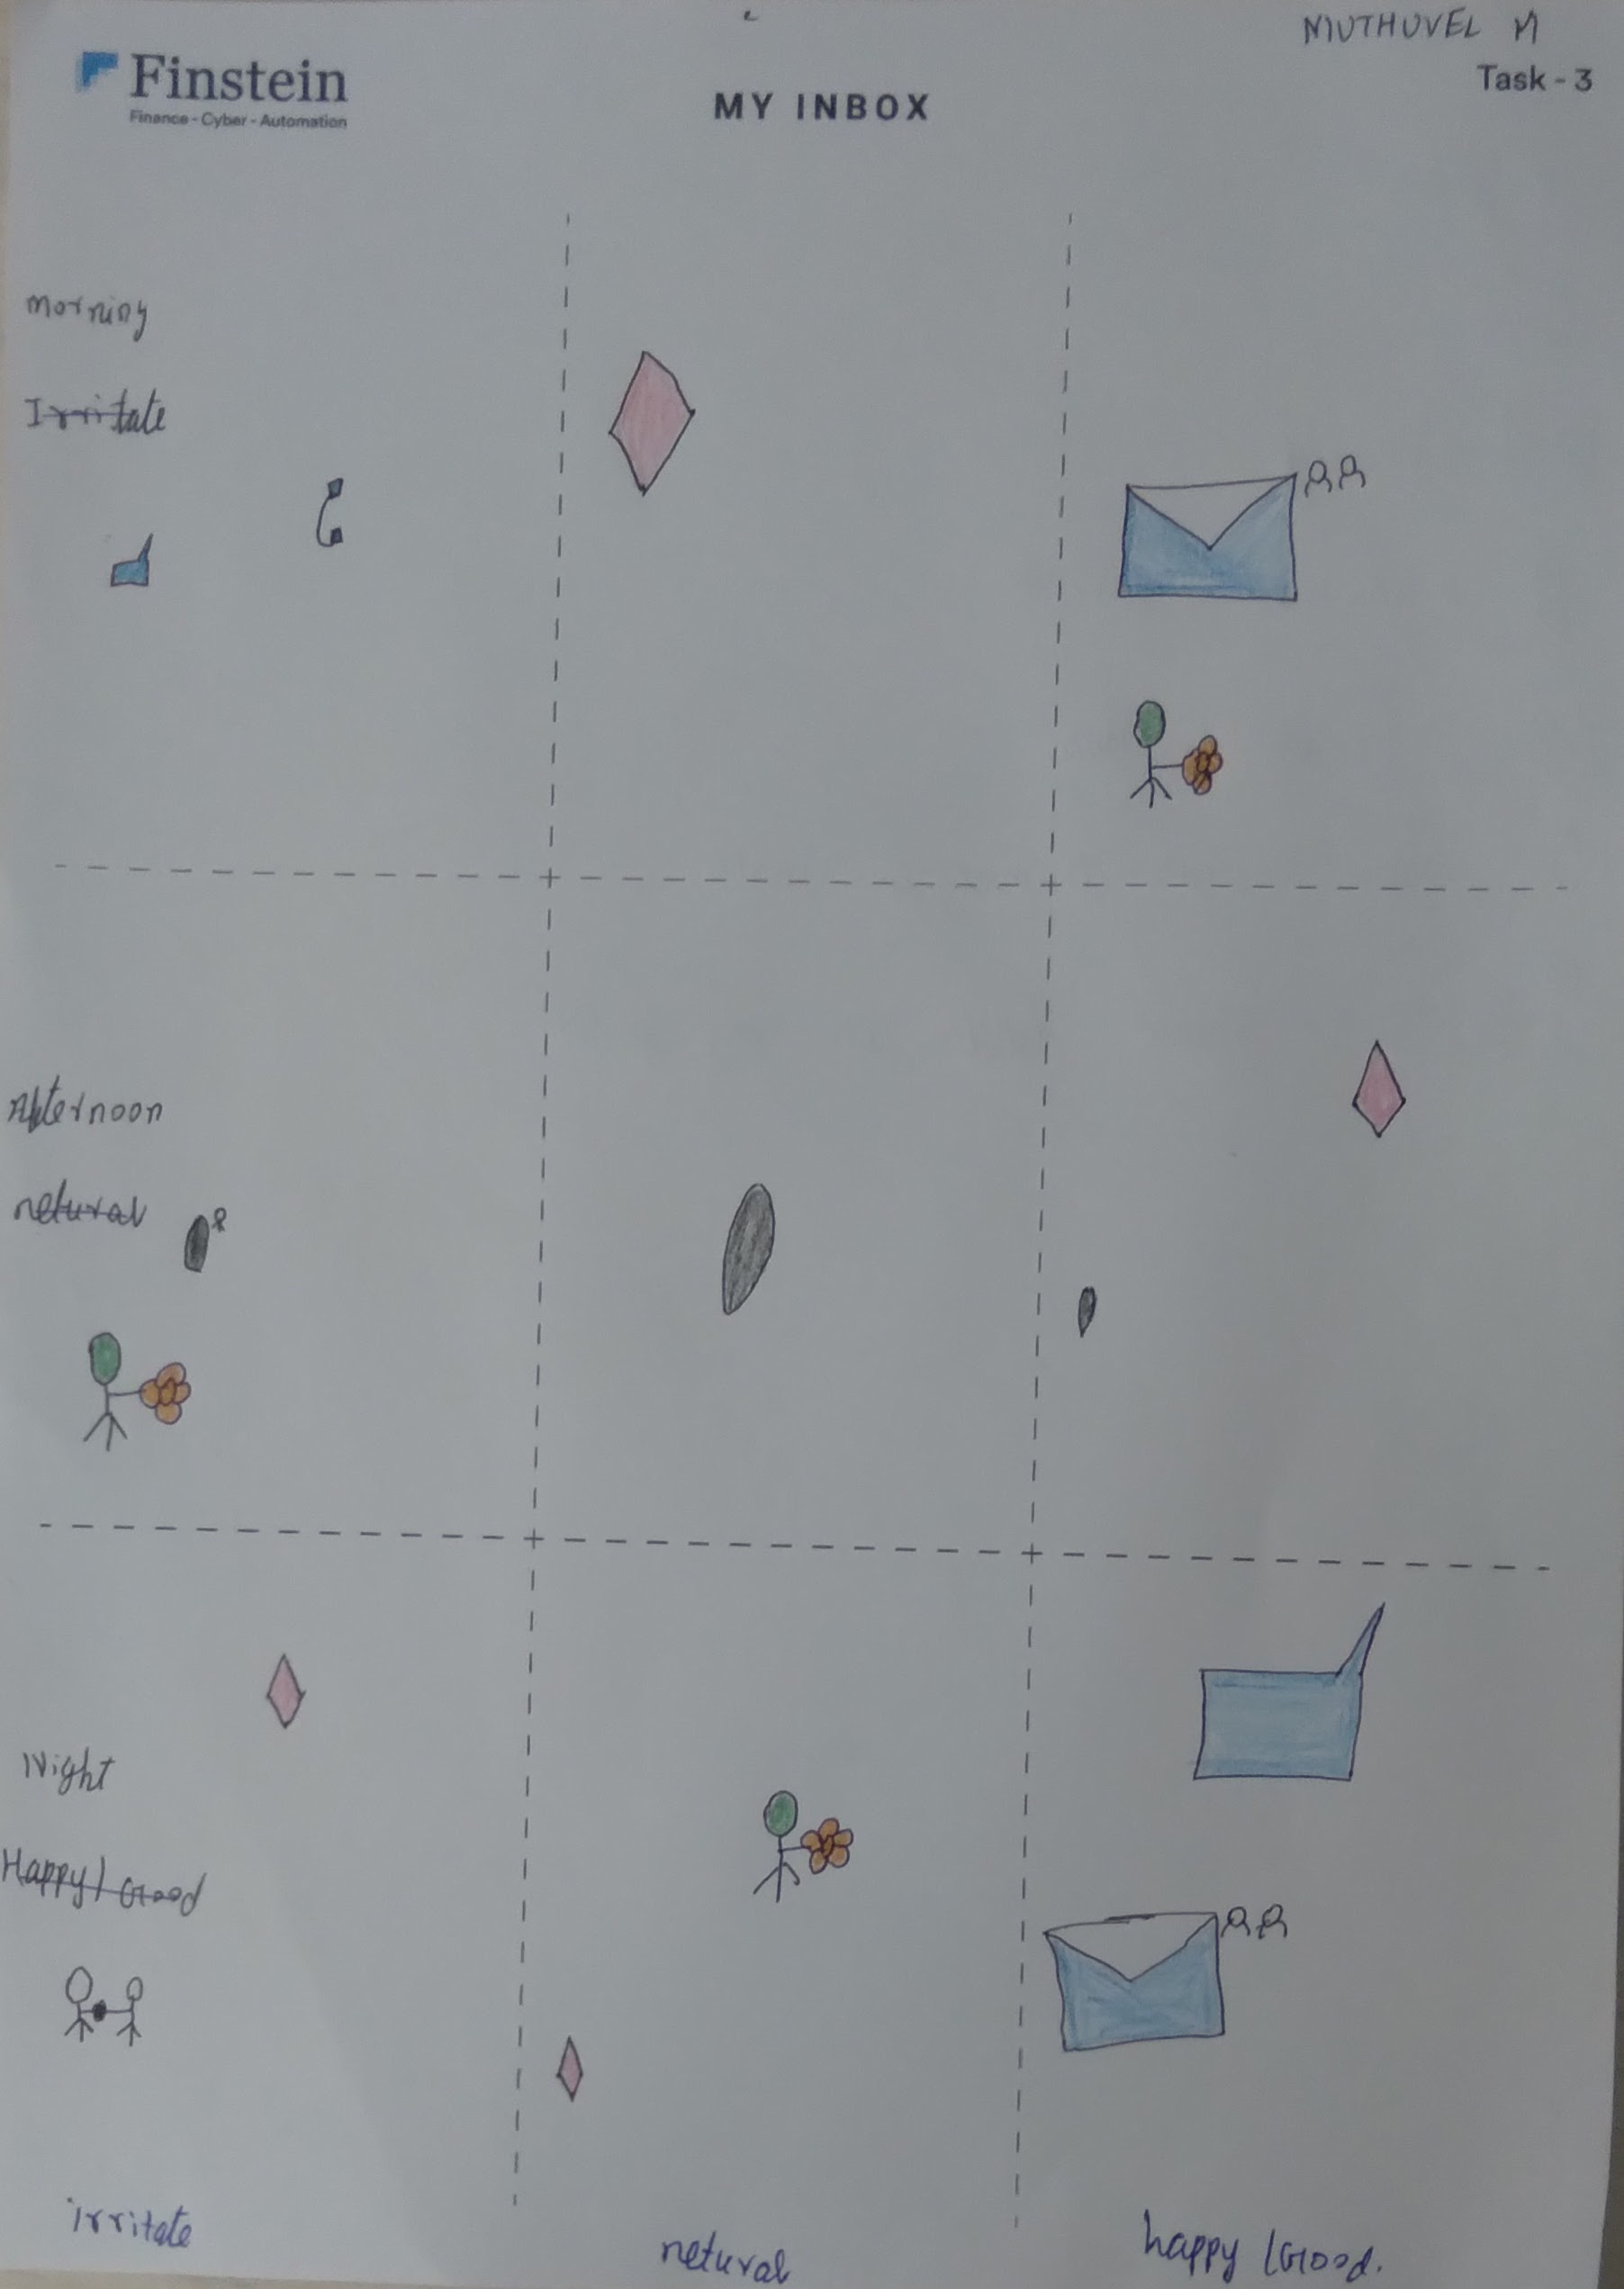 MUTHUVEL M
Finstein
Finance - Cyber - Automation
MY INBOX
Task - 3
morning
Irritate
Afternoon
netural
Night
Happy / Good
irritate
netural
happy / Good.